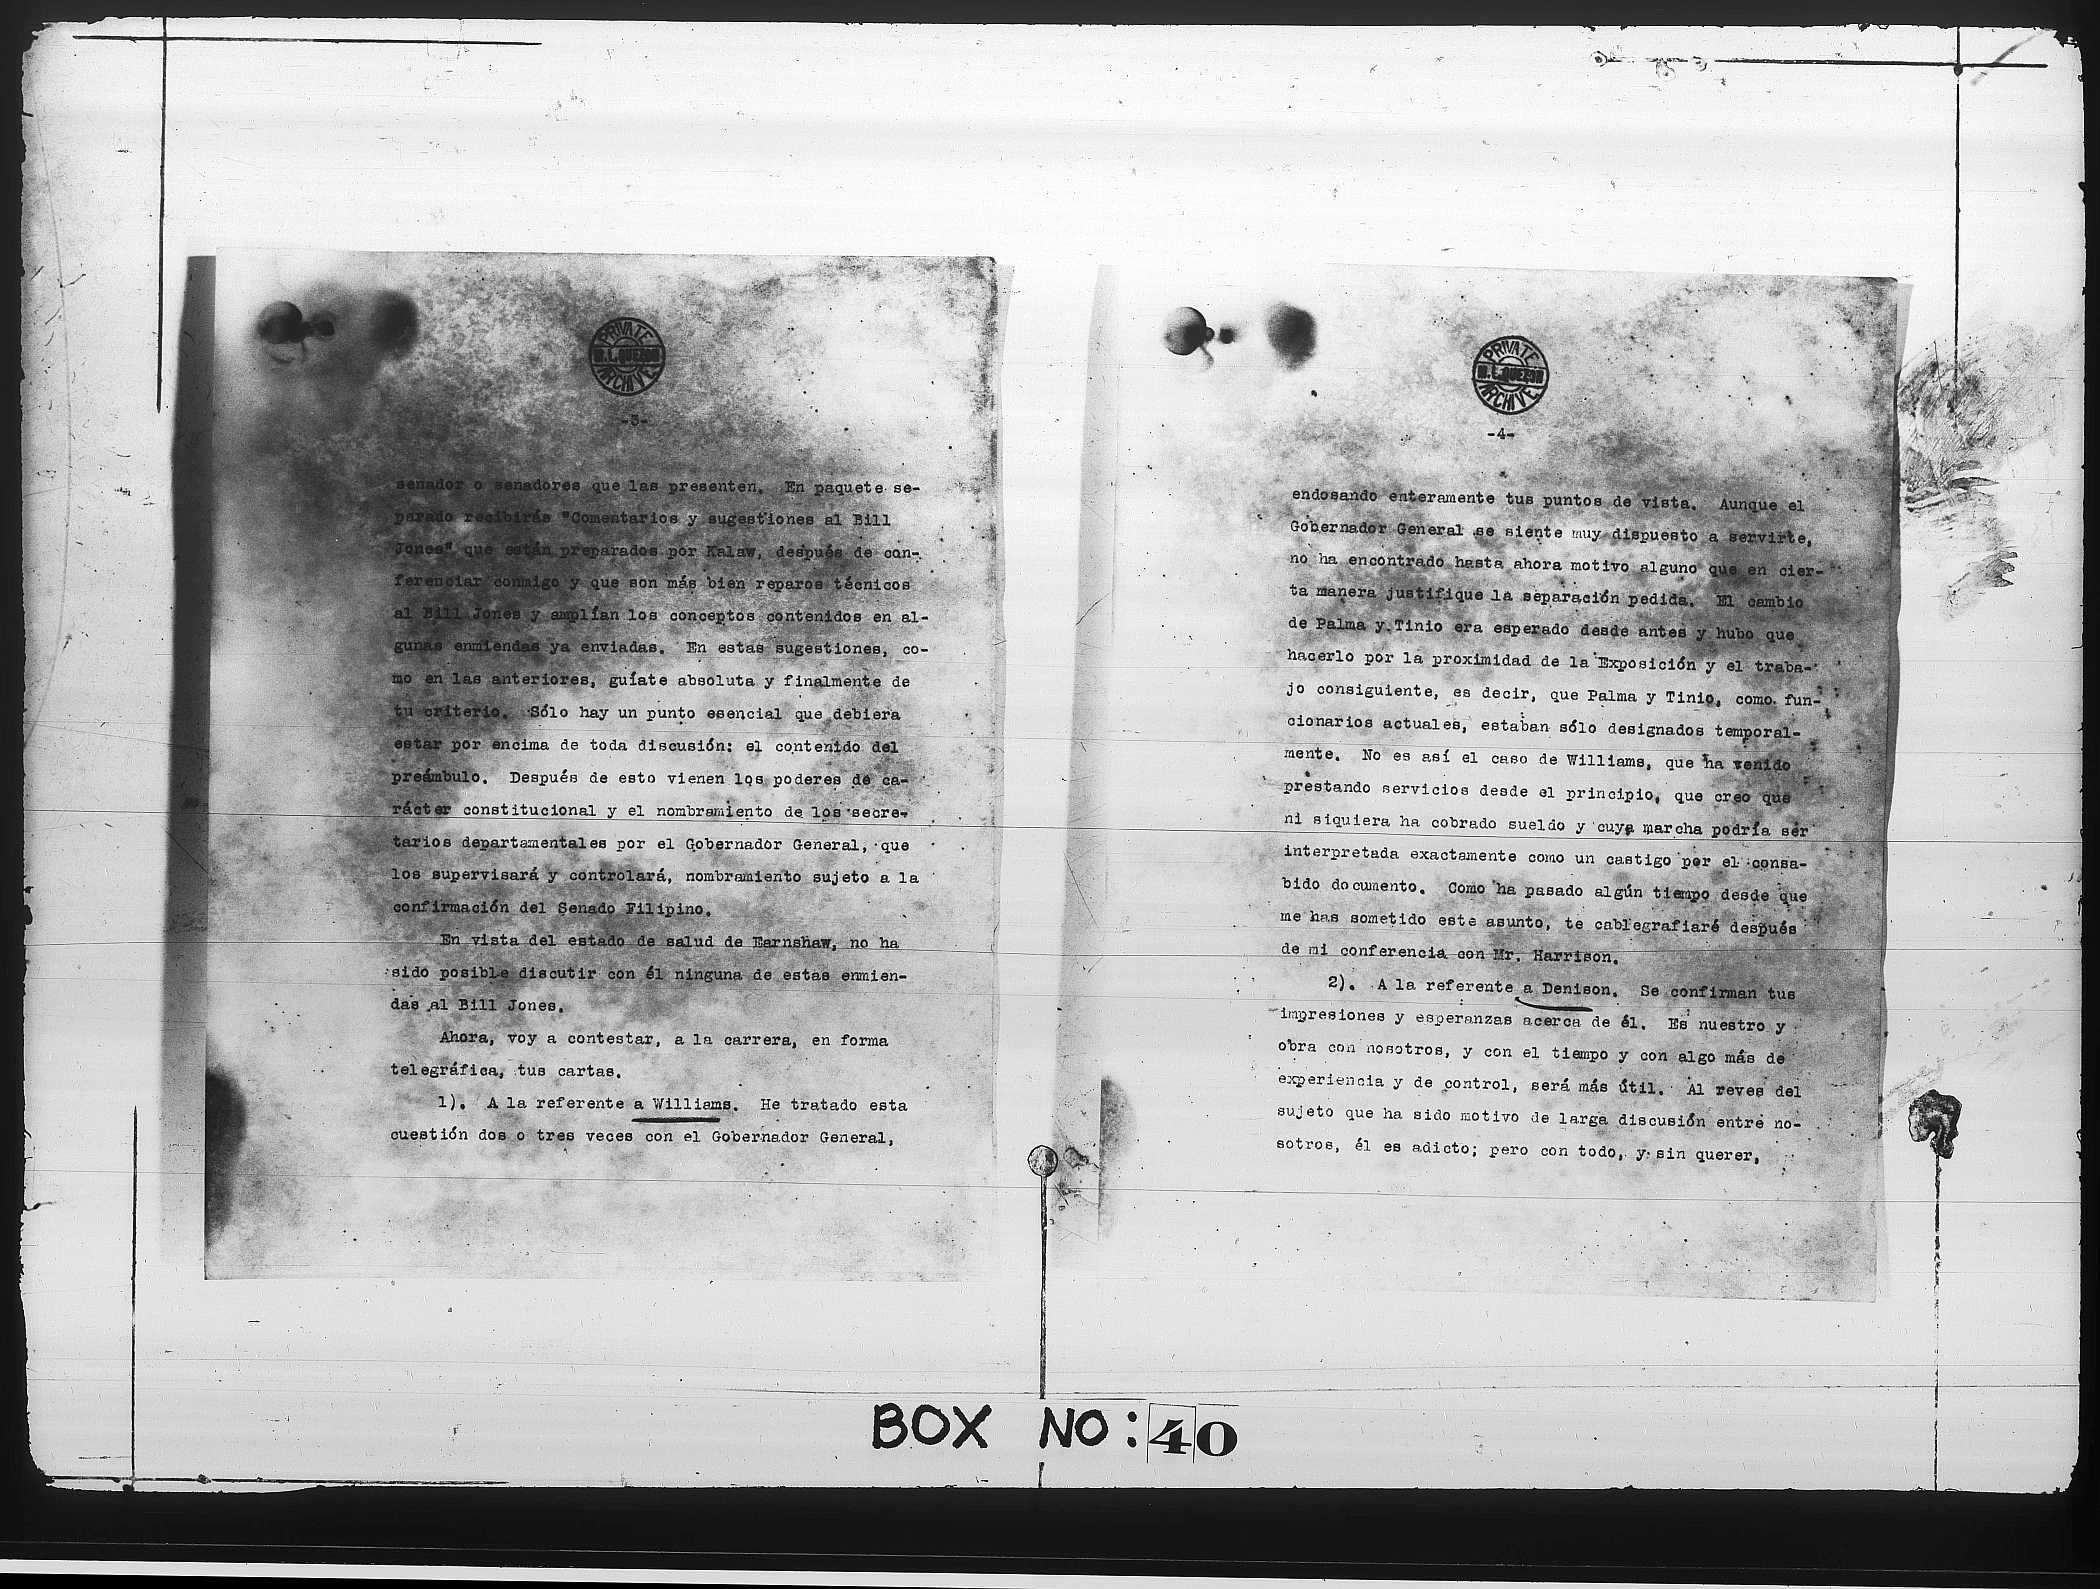 PRIVATE
M.L. QUEZON
ARCHIVE
-3-
senador o senadores que las presenten. En paquete se-
parado recibirás "Comentarios y sugestiones al Bill
Jones" que están preparados por Kalaw, después de con-
ferenciar conmigo y que son más bien reparos técnicos
al Bill Jones y amplían los conceptos contenidos en al-
gunas enmiendas ya enviadas. En estas sugestiones, co-
mo en las anteriores, guíate absoluta y finalmente de
tu criterio. Sólo hay un punto esencial que debiera
estar por encima de toda discusión: el contenido del
preámbulo. Después de esto vienen los poderes de ca-
rácter constitucional y el nombramiento de los secre-
tarios departamentales por el Gobernador General, que
los supervisará y controlará, nombramiento sujeto a la
confirmación del Senado Filipino.
En vista del estado de salud de Earnshaw, no ha
sido posible discutir con él ninguna de estas enmien-
das al Bill Jones.
Ahora, voy a contestar, a la carrera, en forma
telegráfica, tus cartas.
1). A la referente a Williams. He tratado esta
cuestión dos o tres veces con el Gobernador General,
PRIVATE
M.L. QUEZON
ARCHIVE
-4-
endosando enteramente tus puntos de vista. Aunque el
Gobernador General se siente muy dispuesto a servirte,
no ha encontrado hasta ahora motivo alguno que en cier-
ta manera justifique la separación pedida. El cambio
de Palma y Tinio era esperado desde antes y hubo que
hacerlo por la proximidad de la Exposición y el traba-
jo consiguiente, es decir, que Palma y Tinio, como fun-
cionarios actuales, estaban sólo designados temporal-
mente. No es así el caso de Williams, que ha venido
prestando servicios desde el principio, que creo que
ni siquiera ha cobrado sueldo y cuya marcha podría ser
interpretada exactamente como un castigo por el consa-
bido documento. Como ha pasado algún tiempo desde que
me has sometido este asunto, te cablegrafiaré después
de mi conferencia con Mr. Harrison.
2). A la referente a Denison. Se confirman tus
impresiones y esperanzas acerca de él. Es nuestro y
obra con nosotros, y con el tiempo y con algo más de
experiencia y de control, será más útil. Al reves del
sujeto que ha sido motivo de larga discusión entre no-
sotros, él es adicto; pero con todo, y sin querer,
BOX NO: 40